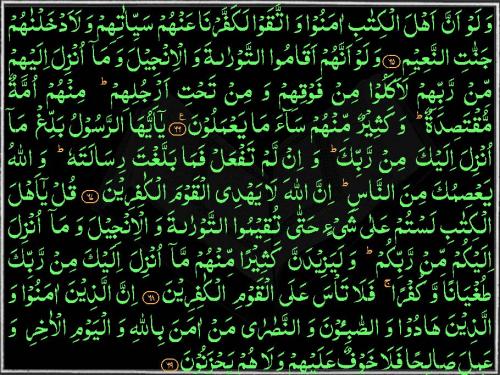 وَلَوْ اَنَّ اَهْلَ الْكِتٰبِ اٰمَنُوْا وَ اتَّقَوْا لَكَفَّرْنَا عَنْهُمْ سَيِّاٰتِهِمْ وَ لَاَدْخَلْنٰهُمْ
جَنّٰتِ النَّعِيْمِ ﴿۶۵﴾ وَ لَوْ اَنَّهُمْ اَقَامُوا التَّوْرٰىةَ وَ الْاِنْجِيْلَ وَ مَاۤ اُنْزِلَ اِلَيْهِمْ
مِّنْ رَّبِّهِمْ لَاَكَلُوْا مِنْ فَوْقِهِمْ وَ مِنْ تَحْتِ اَرْجُلِهِمْ ؕ مِنْهُمْ اُمَّةٌ
مُّقْتَصِدَةٌ ؕ وَ كَثِيْرٌ مِّنْهُمْ سَآءَ مَا يَعْمَلُوْنَ ﴿۶۶﴾ يٰۤاَيُّهَا الرَّسُوْلُ بَلِّغْ مَاۤ
اُنْزِلَ اِلَيْكَ مِنْ رَّبِّكَ ؕ وَ اِنْ لَّمْ تَفْعَلْ فَمَا بَلَّغْتَ رِسَالَتَهٗ ؕ وَ اللّٰهُ
يَعْصِمُكَ مِنَ النَّاسِ ؕ اِنَّ اللّٰهَ لَا يَهْدِى الْقَوْمَ الْكٰفِرِيْنَ ﴿۶۷﴾ قُلْ يٰۤاَهْلَ
الْكِتٰبِ لَسْتُمْ عَلٰى شَيْءٍ حَتّٰى تُقِيْمُوا التَّوْرٰىةَ وَ الْاِنْجِيْلَ وَ مَاۤ اُنْزِلَ
اِلَيْكُمْ مِّنْ رَّبِّكُمْ ؕ وَ لَيَزِيْدَنَّ كَثِيْرًا مِّنْهُمْ مَّاۤ اُنْزِلَ اِلَيْكَ مِنْ رَّبِّكَ
طُغْيَانًا وَّ كُفْرًا ۚ فَلَا تَاْسَ عَلَى الْقَوْمِ الْكٰفِرِيْنَ ﴿۶۸﴾ اِنَّ الَّذِيْنَ اٰمَنُوْا وَ
الَّذِيْنَ هَادُوْا وَ الصّٰبِـُٔوْنَ وَ النَّصٰرٰى مَنْ اٰمَنَ بِاللّٰهِ وَ الْيَوْمِ الْاٰخِرِ وَ
عَمِلَ صَالِحًا فَلَا خَوْفٌ عَلَيْهِمْ وَ لَا هُمْ يَحْزَنُوْنَ ﴿۶۹﴾